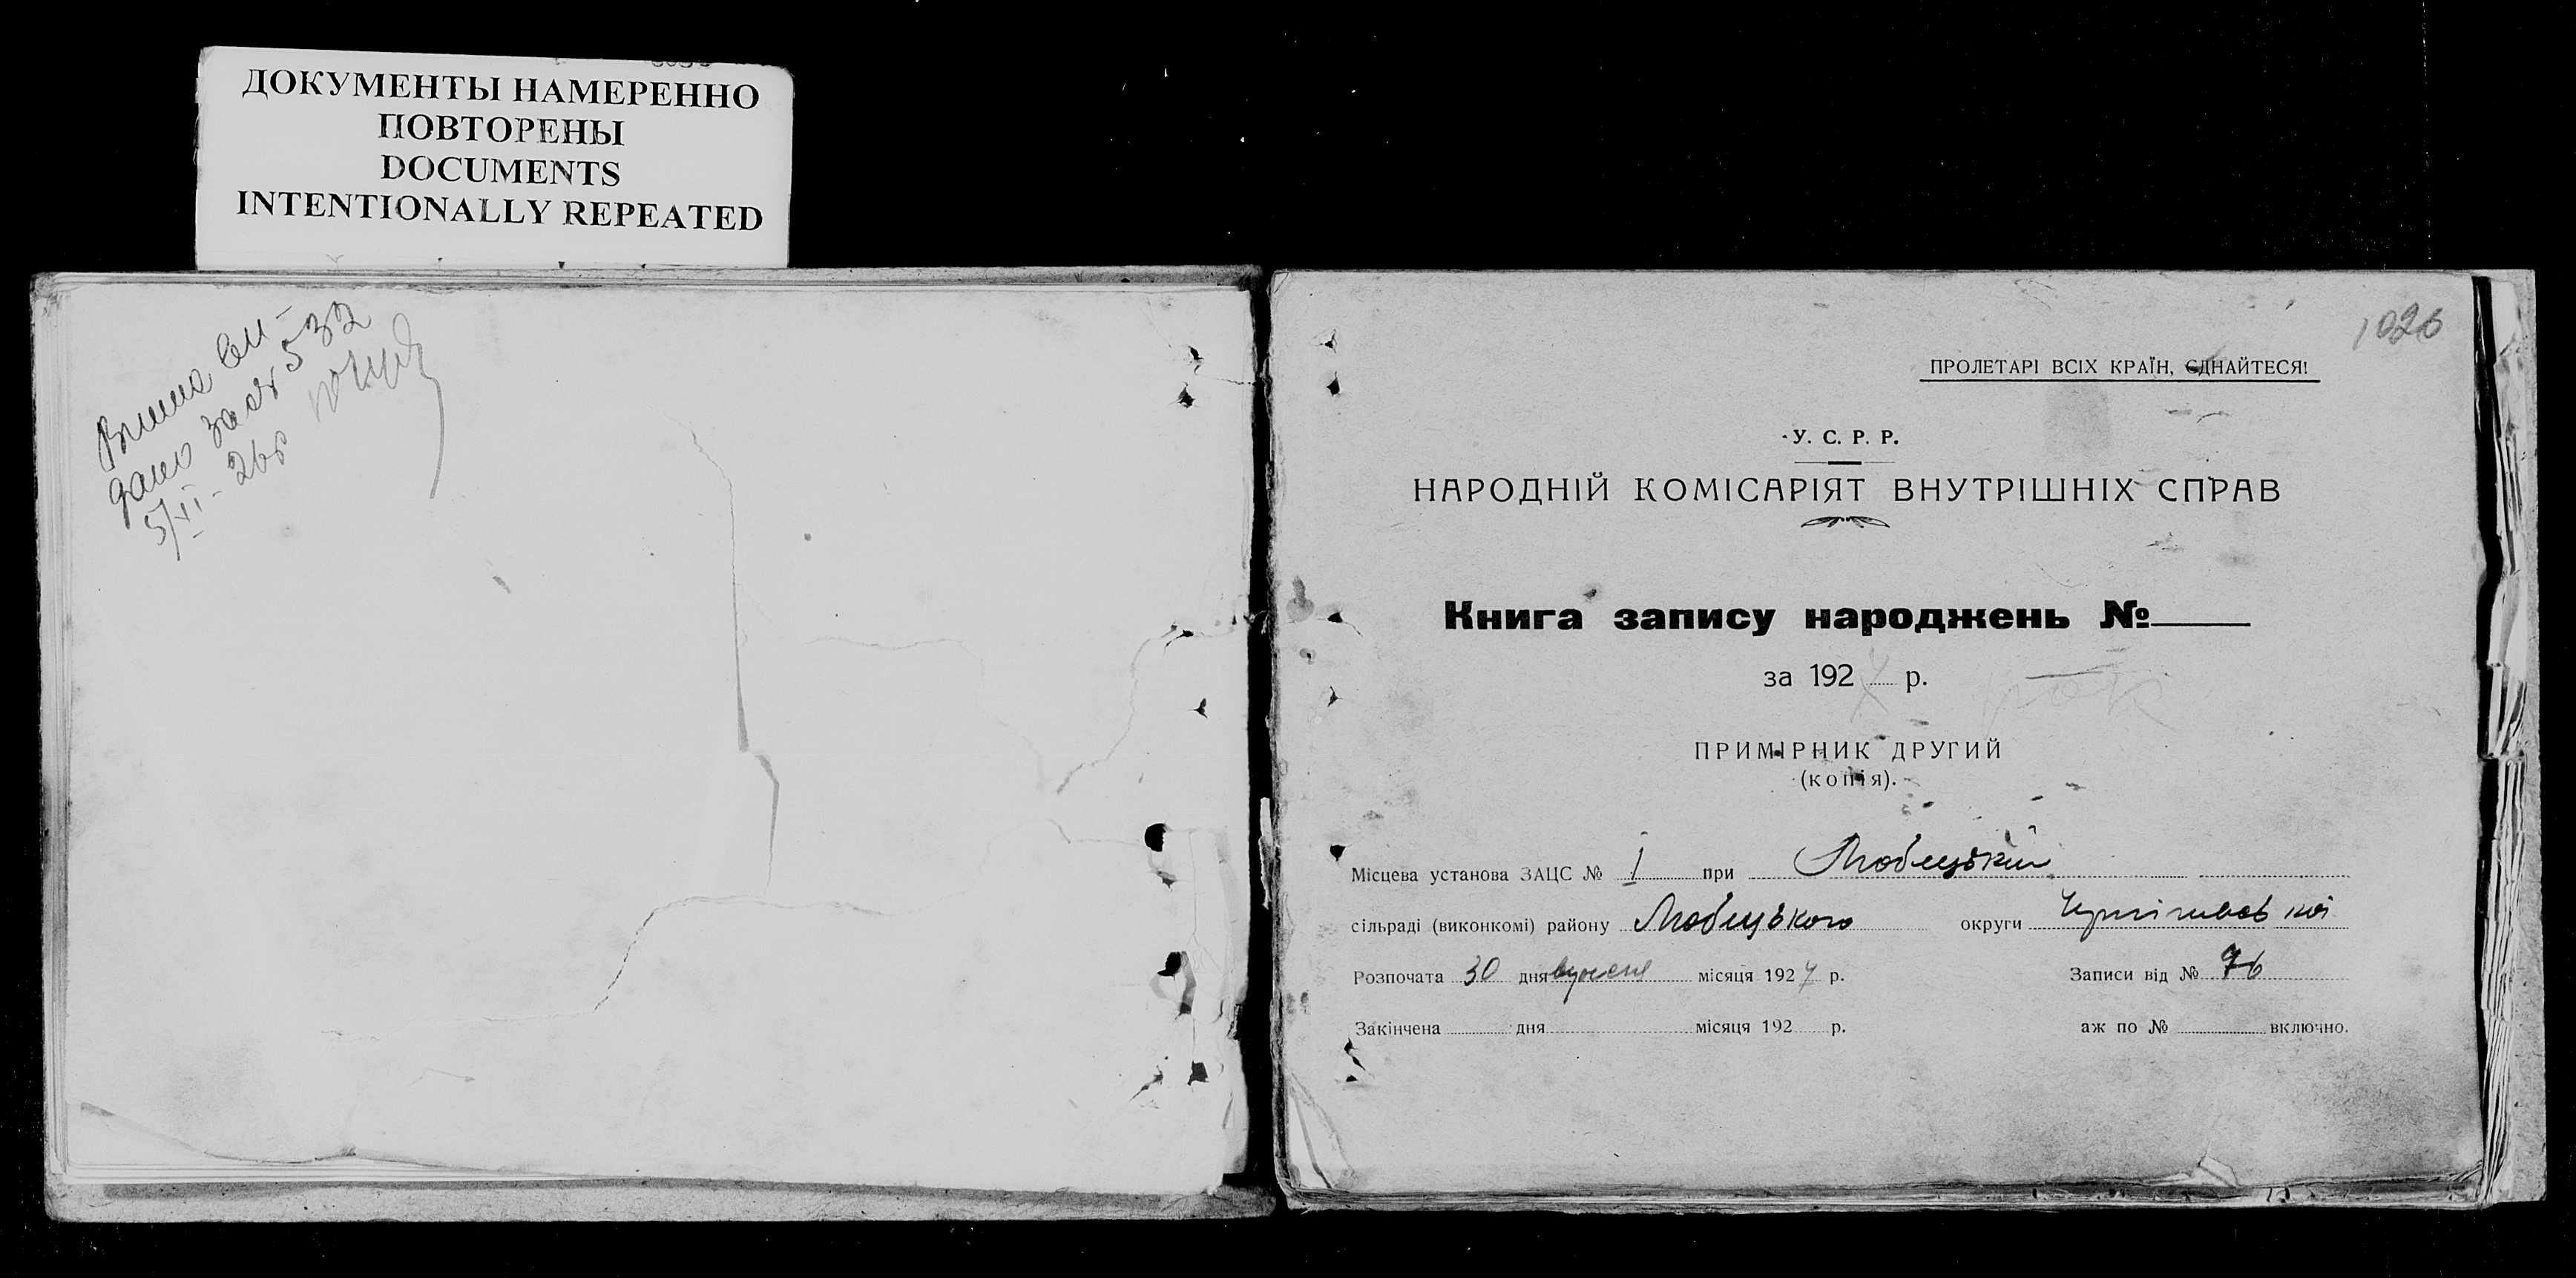 ДОКУМЕНТЫ НАМЕРЕННО
ПОВТОРЕНЫ
DOCUMENTS
INTENTIONALLY REPEATED
дано
5/XI - 26р
1026
ПРОЛЕТАРІ ВСІХ КРАЇН, ЄДНАЙТЕСЯ!
У. С. Р. Р.
НАРОДНІЙ КОМІСАРІЯТ ВНУТРІШНІХ СПРАВ
Книга запису народжень №
за 192 р.
рок
ПРИМІРНИК ДРУГИЙ
(копія).
Місцева установа ЗАЦС № 1 при Любецький
сільраді (виконкомі) району Любецького округи Чернігівської
Розпочата 30 дня місяця 192 р. Записи від № 76
Закінчена дня місяця 192 р. аж по № включно.